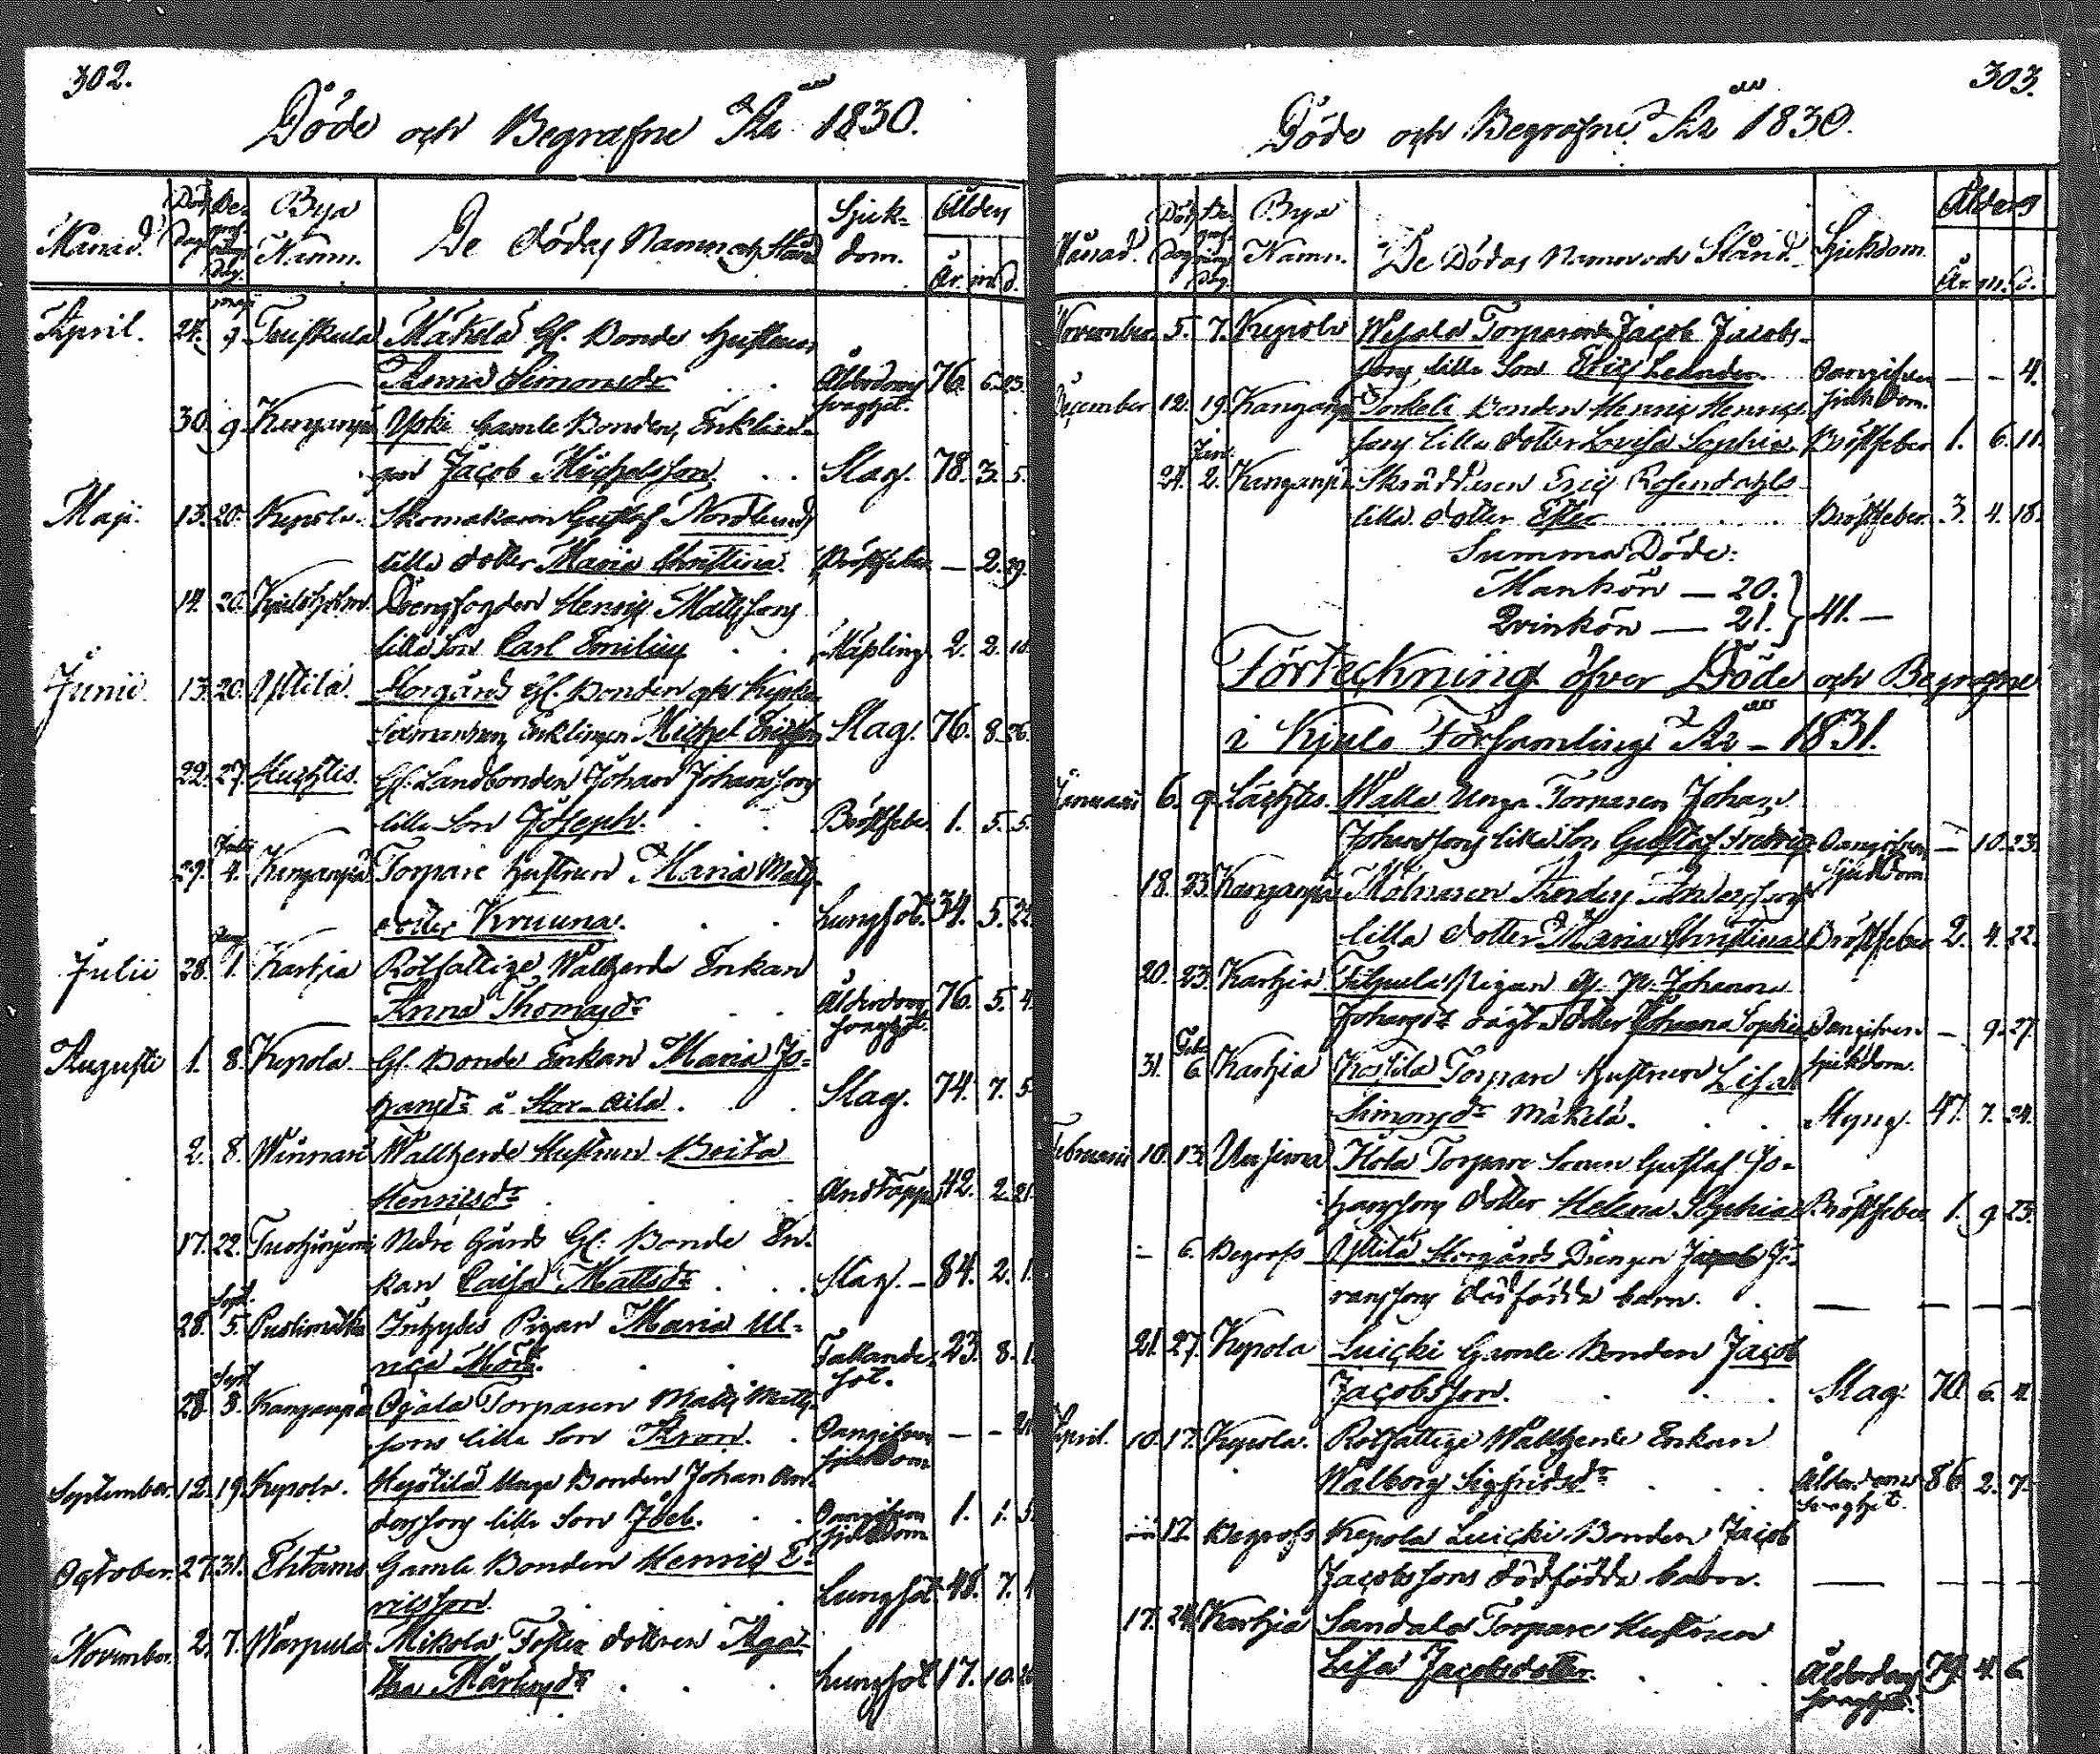 302.
Döde och Begrafne År 1830.
Månad. Död Dag Begrafnings Dag. Bya Namn. De Dödas Namn och Stånd Sjukdom. Ålder
År. m. d.
April. 24. maj 9 Mäkelä Gl. Bonde Hustrun
Anna Simonsdr Ålderdoms svaghet. 76. 6. 23.
30. 9 Kanganpä Yski Gamle Bonden, Enklin-
gen Jacob Michelsson. Slag. 78. 3. 5.
Maji. 13. 20. Kepola. Skomakaren Gustaf Nordlunds
lilla dotter Maria Christina. Bröstfeber — 2. 29.
14. 20. Henric Mattssons
lille son Carl Emilius Mässling 2. 2.
Junii. 13. 20. Yttilä. Storgårds Gl. Bonden och
Enklingen Michel Ericsson Slag. 76. 8. 26.
22. 27. Huchtis. Gl. Landbonden Johan Johanssons
lille Son Joseph. Bröstfeber 1. 5. 5.
29. Julii 4. Kanganpä Torpare hustrun Maria Matts-
dotter Kruuna. Lungsot. 34. 5. 22.
Julii 28. Aug 1. Karhia Rotfattige Wallherde Enkan
Anna Thomasdr Ålderdoms svaghet. 76. 5. 4.
Augusti 1. 8. Kepola Gl. Bonde Enkan Maria Jo-
hansdr å Stor-Eila. Slag. 74. 7. 5.
2. 8. Winnari Wallherde Hustrun Beata
Henricsdr Andtäppa 42. 2. 21.
17. 22. Nedre Gårds Gl. Bonde En-
kan Caisa Mattsdr Slag. — 84. 2. 1.
28. Sept. 5. Inhyses Pigan Maria Ul-
rica Mört. Fallande sot. 23. 8. 1.
28. Sept 5. Kanganpä Ojala Torparen Matts Matts-
sons lille Son Aron. Oangifven sjukdom — — 21
September. 12. 19. Kepola. Hejtilä Unge Bonden Johan An-
derssons lille Son Joel. Oangifven sjukdom 1. 1. 5.
October. 27. 31. Ehtamo Gamle Bonden Henric E-
ricsson. Lungsot 48. 7. 1
November. 2. 7. Warpula Mikola Foster dottren Aga-
tha Mårtensdr Lungsot 17. 10.
303.
Döde och Begrafne År 1830.
Månad. Död Dag Begrafnings Dag. Bya Namn. De Dödas Namn och Stånd. Sjukdom. Ålder
År. m. d.
November. 5. 7. Kepola Torparen Jacob Jacobs-
sons lille Son Eric Leander. Oangifven sjukdom. — — 4.
December 12. 19. Kanganpä Torkeli Bonden Henric Henrics-
sons lilla dotter Lovisa Sophia. Bröstfeber 1. 6. 11.
24. Jan. 2. Kanganpä Skräddaren Eric Rosendahls
lilla dotter Ester Bröstfeber. 3. 4. 18.
Summa Döde:
Mankön — 20.
Qvinkön — 21. } 41. —
Förteckning öfver Döde och Begrafne
i Kjulo Församling År — 1831.
Januari 6. 9. Lächtis. Walla Unga Torparen Johan
Johanssons lille Son Gustaf Fredric Oangifven sjukdom — 10. 23.
18. 23. Kanganpä Mölnaren Anders Anderssons
lilla dotter Maria Christina. Bröstfeber 2. 4. 22.
20. 23. Karhia Pigan Johanna
Johansdr oägta dotter Johanna Sophia Oangifven sjukdom. — 9. 27.
31. Febr 6. Karhia Kostila Torpare hustrun Lisa
Simonsdr Mäkelä. Styng. 47. 7. 24.
Februarii 10. 13. Hola Torpare Sonen Gustaf Jo-
hanssons dotter Helena Sophia Bröstfeber 1. 9. 23.
– 6. Begrofs Yttilä Storgårds Drängen Jacob Jö-
ranssons dödfödda barn. — — — —
21. 27. Kepola Luicki Gamle Bonden Jacob
Jacobsson. Slag. 70. 6. 4.
April. 10. 17. Kepola. Rotfattige Wallherde Enkan
Walborg Sigfridsdr Ålderdoms svaghet. 86. 2. 7.
17. Begrofs Kepola Luicki Bonden Jacob
Jacobssons dödfödda barn. — — — —
17. 24. Karhia Sandala Torpare Hustrun
Lisa Jacobsdotter. Ålderdoms svaghet. 79. 4. 6.